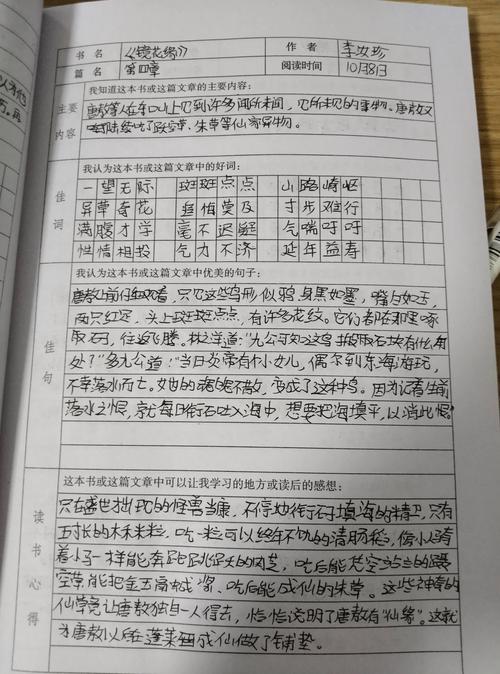 书 名 《镜花缘》 作 者 李汝珍
篇 名 第四章 阅读时间 10月8日
主要内容
我知道这本书或这篇文章的主要内容:
唐敖等人在东口山上见到许多闻所未闻,见所未见的事物。唐敖又
陆续吃了蹑空草、朱草等仙家异物。
佳词
我认为这本书或这篇文章中的好词:
一望无际 斑斑点点 山路崎岖
异草奇花 追悔莫及 寸步难行
满腹才学 毫不迟疑 气喘吁吁
性情相投 气力不济 延年益寿
佳句
我认为这本书或这篇文章中优美的句子:
唐敖上前仔细观看,只见这些鸟形似鸦,身黑如墨,嘴白如玉,
两只红足,头上斑斑点点,有许多花纹。它们都在那里啄
取石,往返飞腾。林之洋道:“九公可知这鸟搬取石块有什么用
处?”多九公道:“当日炎帝有个小女儿,偶尔到东海游玩,
不幸落水而亡。她的魂魄不散,变成了这种鸟。因为记着生前
落水之恨,就每日衔石吐入海中,想要把海填平,以消此恨。”
读书心得
这本书或这篇文章中可以让我学习的地方或读后的感想:
只在盛世出现的怪兽当康,不停地衔石填海的精卫,只有
五寸长的木禾米粒,吃一粒可以终年不饥的清肠稻,像人骑
着小马一样能奔跑跳跃的肉芝,吃后能凭空站立的蹑
空草,能把金玉高成浆、吃后能成仙的朱草。这些神奇的
仙草竟让唐敖独自一人得去,恰恰说明了唐敖有“仙缘”。这就
为唐敖以后蓬莱成仙做了铺垫。